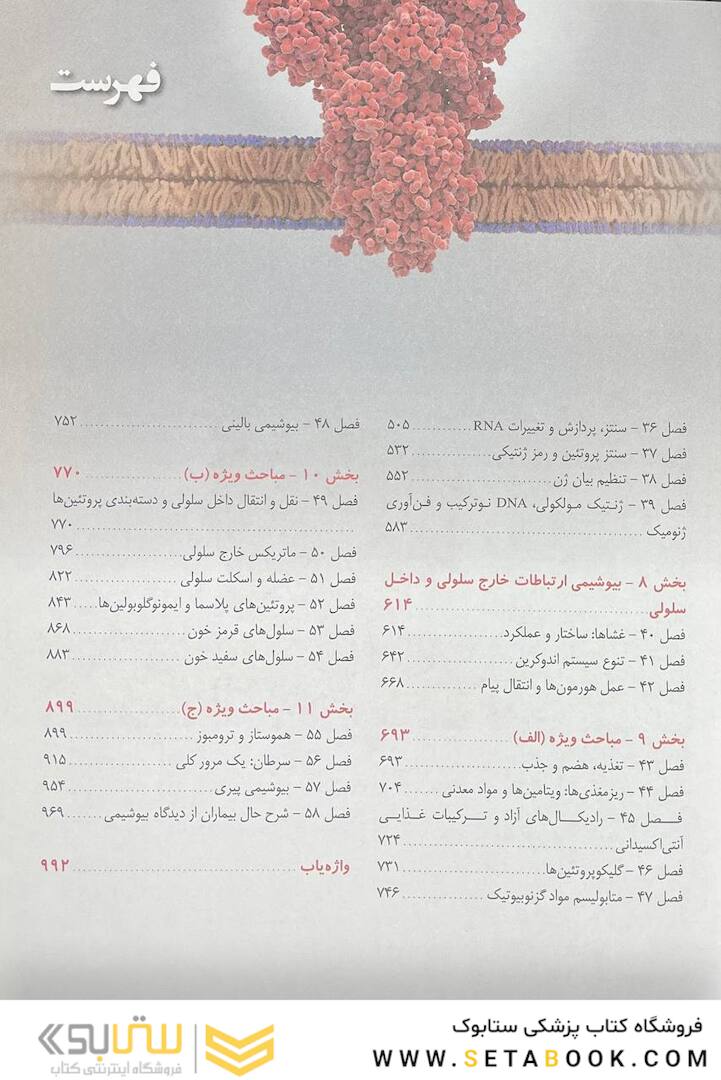 فهرست
فصل ۳۶ – سنتز، پردازش و تغییرات RNA ............ ۵۰۵
فصل ۳۷ – سنتز پروتئین و رمز ژنتیکی ............ ۵۳۲
فصل ۳۸ – تنظیم بیان ژن ............ ۵۵۲
فصل ۳۹ – ژنتیک مولکولی، DNA نوترکیب و فن‌آوری
ژنومیک ............ ۵۸۳
بخش ۸ – بیوشیمی ارتباطات خارج سلولی و داخل
سلولی ............ ۶۱۴
فصل ۴۰ – غشاها: ساختار و عملکرد ............ ۶۱۴
فصل ۴۱ – تنوع سیستم اندوکرین ............ ۶۴۲
فصل ۴۲ – عمل هورمون‌ها و انتقال پیام ............ ۶۶۸
بخش ۹ – مباحث ویژه (الف) ............ ۶۹۳
فصل ۴۳ – تغذیه، هضم و جذب ............ ۶۹۳
فصل ۴۴ – ریزمغذی‌ها: ویتامین‌ها و مواد معدنی ....... ۷۰۴
فصل ۴۵ – رادیکال‌های آزاد و ترکیبات غذایی
آنتی‌اکسیدانی ............ ۷۲۴
فصل ۴۶ – گلیکوپروتئین‌ها ............ ۷۳۱
فصل ۴۷ – متابولیسم مواد گزنوبیوتیک ............ ۷۴۶
فصل ۴۸ – بیوشیمی بالینی ............ ۷۵۲
بخش ۱۰ – مباحث ویژه (ب) ............ ۷۷۰
فصل ۴۹ – نقل و انتقال داخل سلولی و دسته‌بندی پروتئین‌ها
............ ۷۷۰
فصل ۵۰ – ماتریکس خارج سلولی ............ ۷۹۶
فصل ۵۱ – عضله و اسکلت سلولی ............ ۸۲۲
فصل ۵۲ – پروتئین‌های پلاسما و ایمونوگلوبولین‌ها ..... ۸۴۳
فصل ۵۳ – سلول‌های قرمز خون ............ ۸۶۸
فصل ۵۴ – سلول‌های سفید خون ............ ۸۸۳
بخش ۱۱ – مباحث ویژه (ج) ............ ۸۹۹
فصل ۵۵ – هموستاز و ترومبوز ............ ۸۹۹
فصل ۵۶ – سرطان: یک مرور کلی ............ ۹۱۵
فصل ۵۷ – بیوشیمی پیری ............ ۹۵۴
فصل ۵۸ – شرح حال بیماران از دیدگاه بیوشیمی ....... ۹۶۹
واژه‌یاب ............ ۹۹۲
فروشگاه کتاب پزشکی ستابوک
WWW.SETABOOK.COM
ستابوک
فروشگاه اینترنتی کتاب